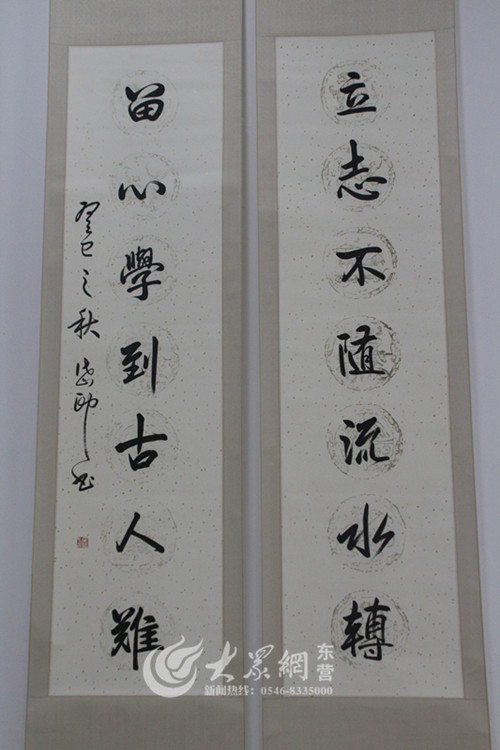 立志不随流水轉
留心學到古人難
癸巳之秋
大眾網 东营
新闻热线：0546-8335000